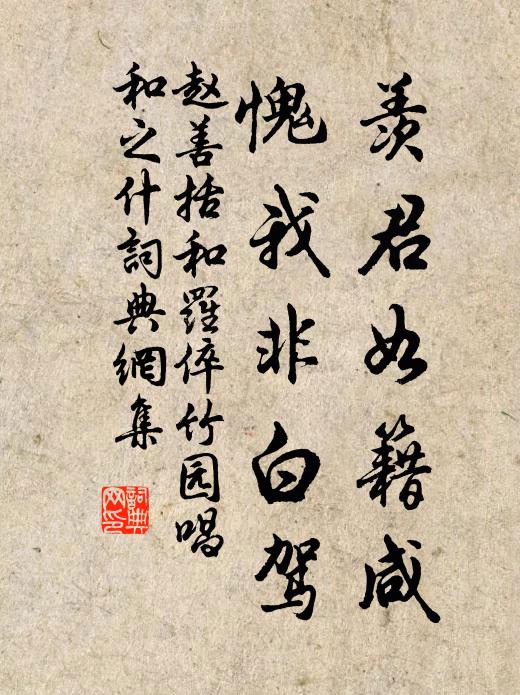 羡君如籍咸
愧我非白驾
赵善括和羅倅竹园唱
和之什詞典網集
詞典网印